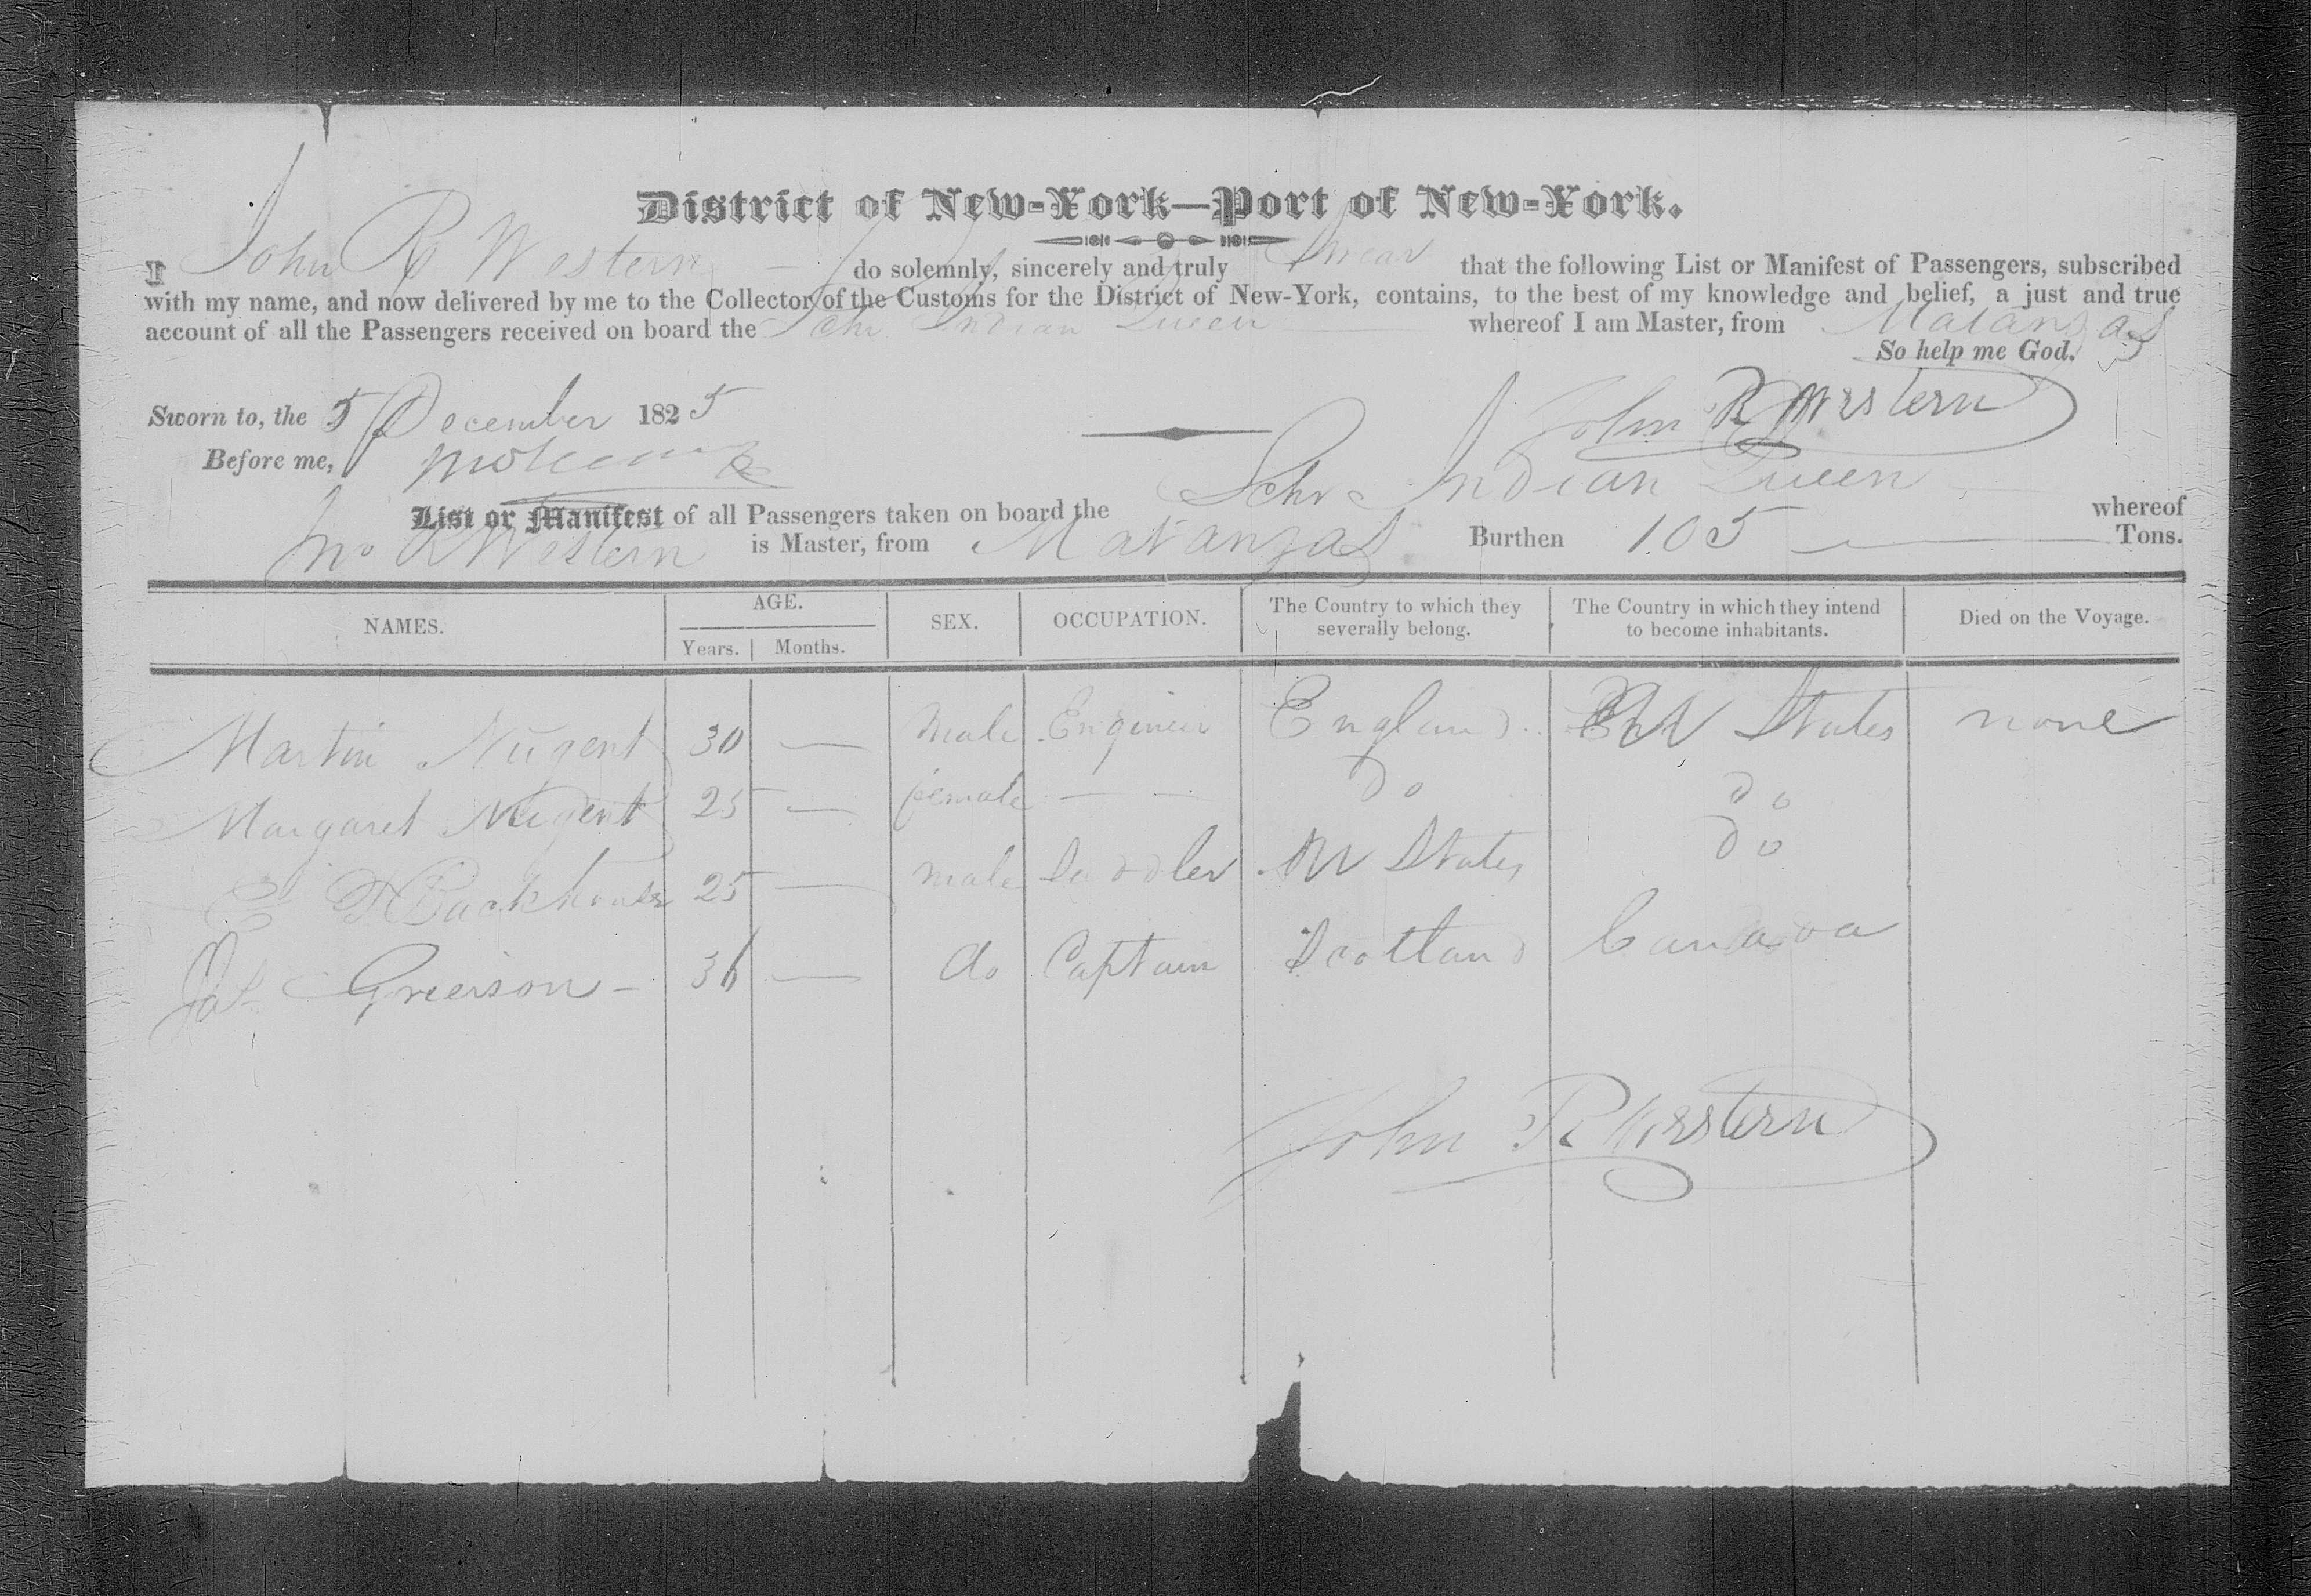 District of New-York—Port of New-York.
I John R Western do solemnly, sincerely and truly Swear that the following List or Manifest of Passengers, subscribed
with my name, and now delivered by me to the Collector of the Customs for the District of New-York, contains, to the best of my knowledge and belief, a just and true
account of all the Passengers received on board the Schr Indian Queen whereof I am Master, from Matanzas
So help me God.
Sworn to, the 5 December 1825
John R Western
Before me,
List or Manifest of all Passengers taken on board the Schr Indian Queen whereof
Jno R Western is Master, from Matanzas Burthen 105 Tons.
NAMES. AGE. Years. Months. SEX. OCCUPATION. The Country to which they severally belong. The Country in which they intend to become inhabitants. Died on the Voyage.
Martin Nugent 30 — male Engineer England U States none
Margaret Nugent 25 — female — — Do Do
E 25 — male Saddler U States Do
Jas Grierson — 36 — do Captain Scotland Canada
John R Western